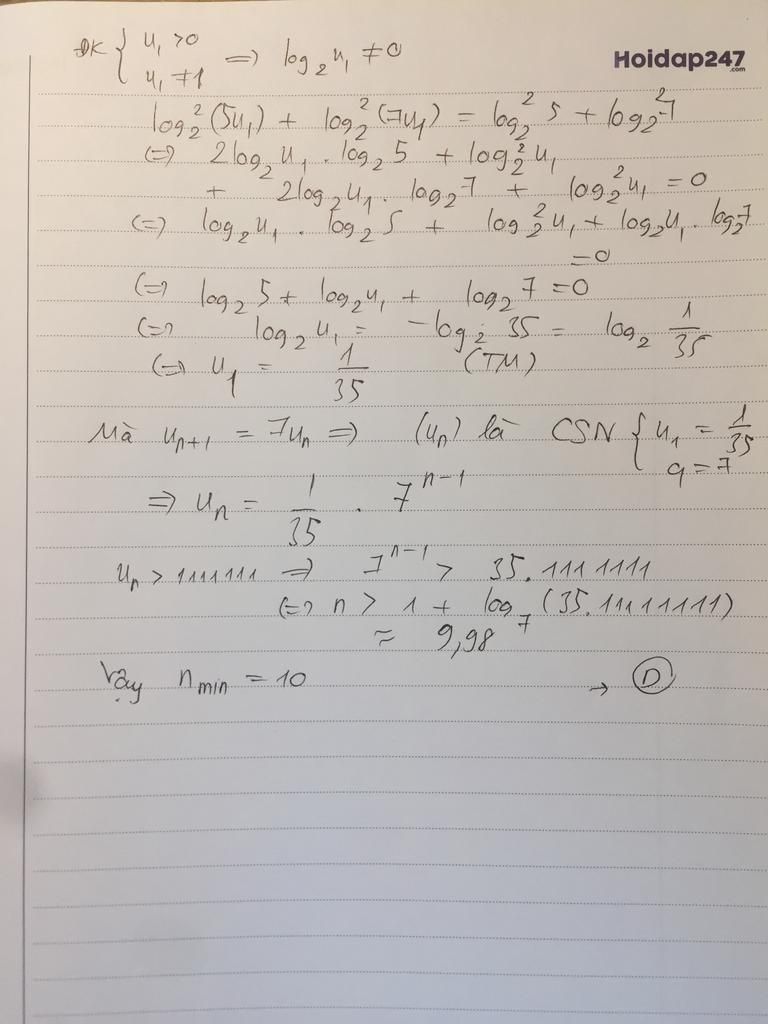 ĐK { u₁ > 0
u₁ ≠ 1 => log₂ u₁ ≠ 0
Hoidap247
.com
log₂²(5u₁) + log₂²(7u₁) = log₂² 5 + log₂² 7
(=) 2log₂ u₁ . log₂ 5 + log₂² u₁
+ 2log₂ u₁ . log₂ 7 + log₂² u₁ = 0
(=) log₂ u₁ . log₂ 5 + log₂² u₁ + log₂ u₁ . log₂ 7
= 0
(=) log₂ 5 + log₂ u₁ + log₂ 7 = 0
(=) log₂ u₁ = -log₂ 35 = log₂ 1/35
(=) u₁ = 1/35 (TM)
Mà uₙ₊₁ = 7uₙ => (uₙ) là CSN { u₁ = 1/35
q = 7
=> uₙ = 1/35 . 7ⁿ⁻¹
uₙ > 1111111 => 7ⁿ⁻¹ > 35.1111111
(=) n > 1 + log₇ (35.11111111)
≈ 9,98
Vậy n min = 10 → D